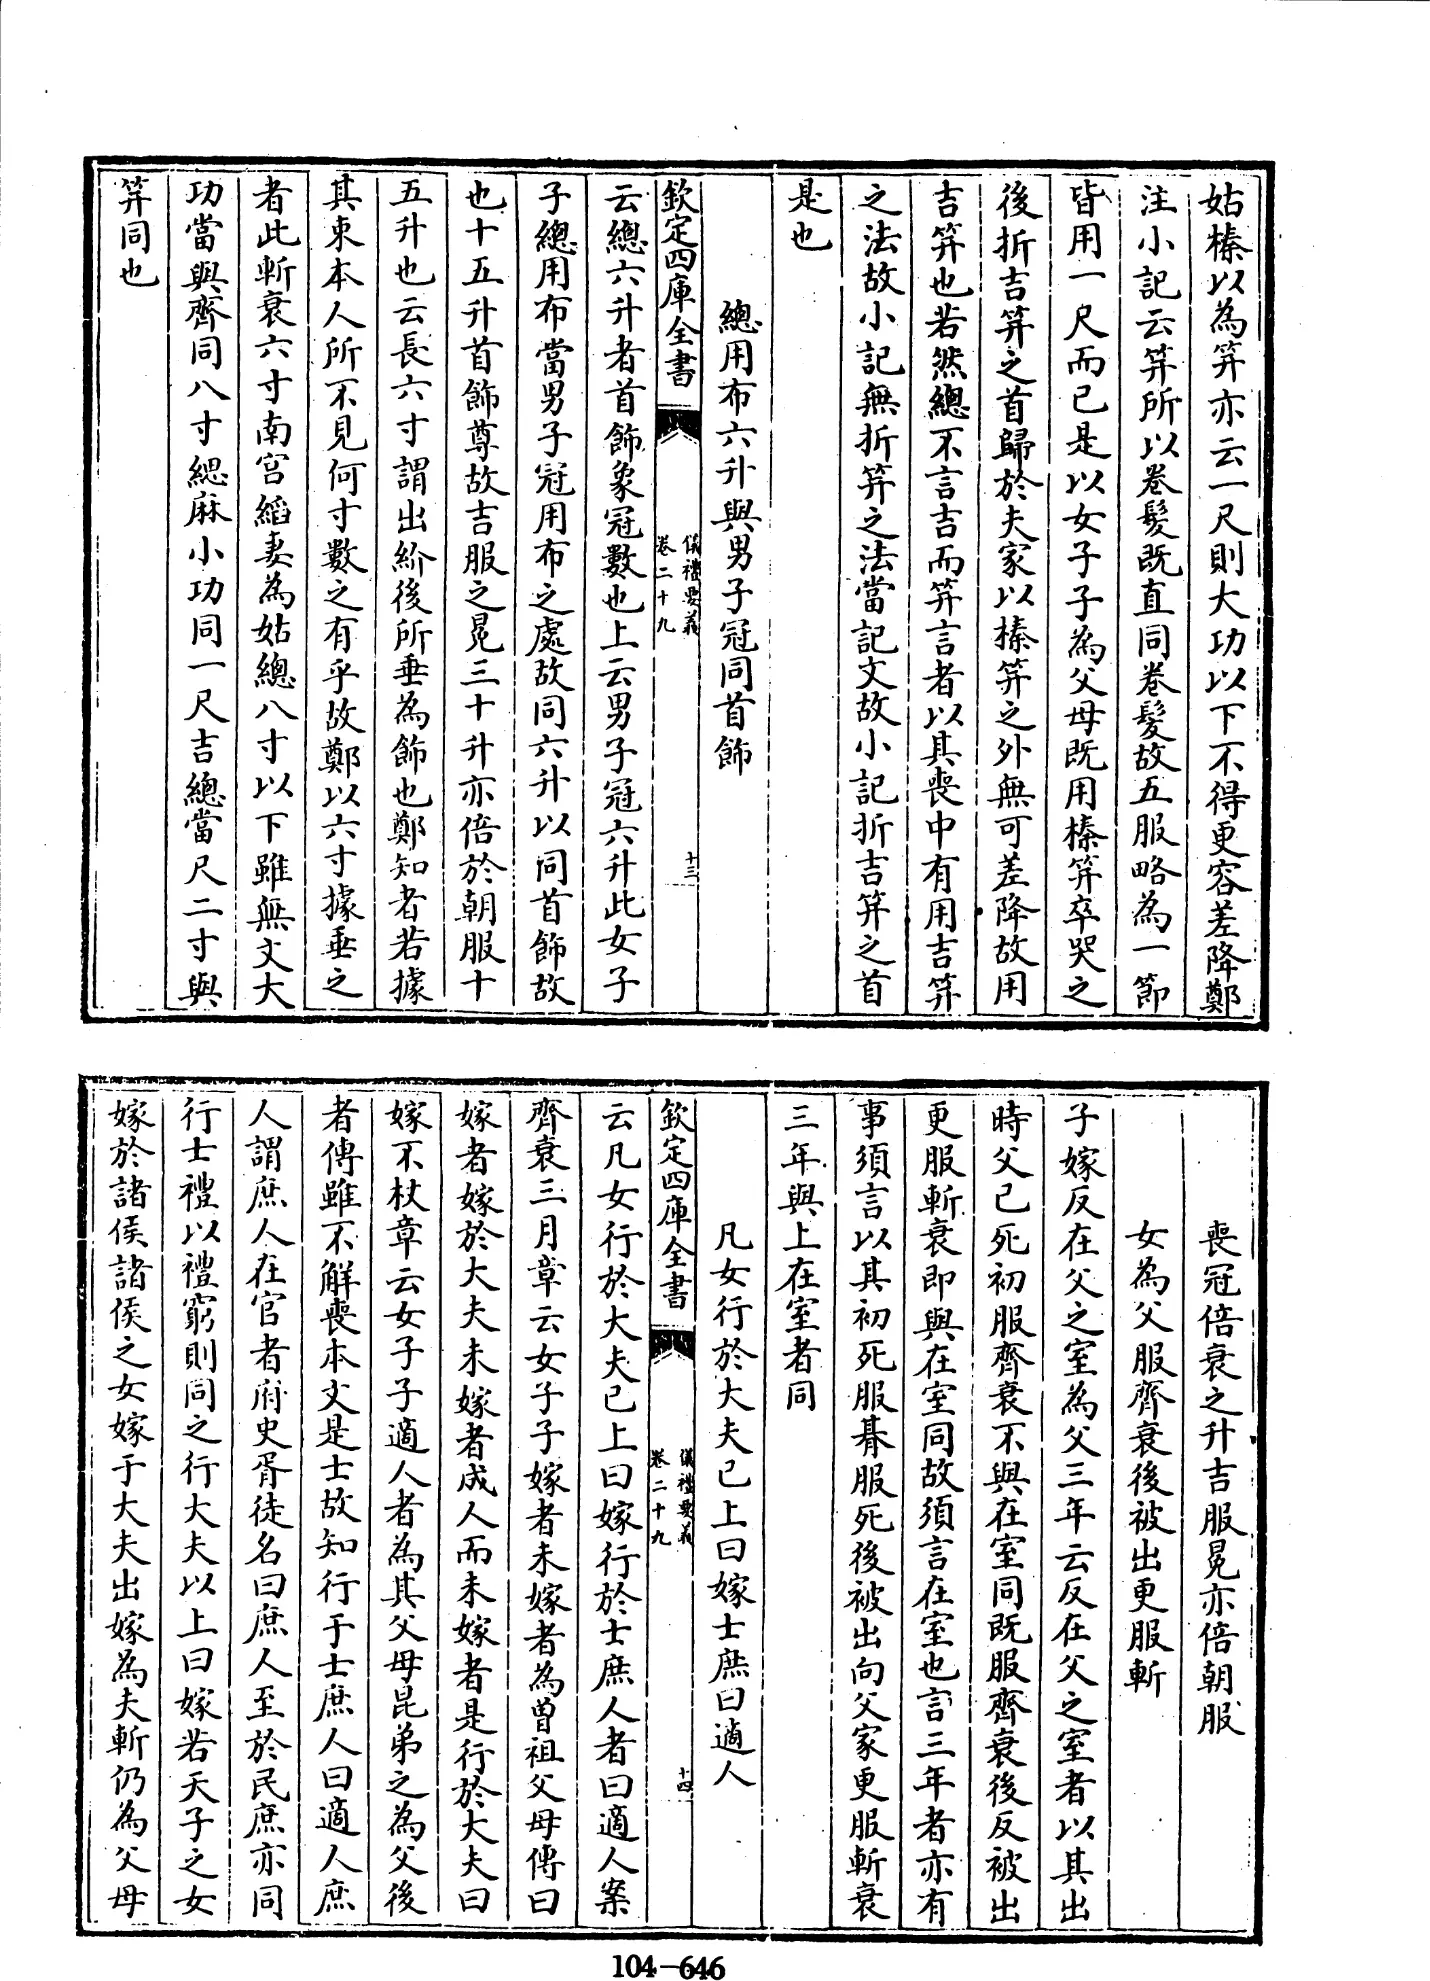 姑榛以為笄亦云一尺則大功以下不得更容差降鄭
注小記云笄所以卷髮既直同卷髮故五服略為一節
皆用一尺而已是以女子子為父母既用榛笄卒哭之
後折吉笄之首歸於夫家以榛笄之外無可差降故用
吉笄也若然總不言吉而笄言者以其喪中有用吉笄
之法故小記無折笄之法當記文故小記折吉笄之首
是也
總用布六升與男子冠同首飾
欽定四庫全書
儀禮要義
卷二十九
十三
云總六升者首飾象冠數也上云男子冠六升此女子
子總用布當男子冠用布之處故同六升以同首飾故
也十五升首飾尊故吉服之冕三十升亦倍於朝服十
五升也云長六寸謂出紒後所垂為飾也鄭知者若據
其束本人所不見何寸數之有乎故鄭以六寸據垂之
者此斬衰六寸南宮縚妻為姑總八寸以下雖無文大
功當與齊同八寸緦麻小功同一尺吉總當尺二寸與
笄同也
喪冠倍衰之升吉服冕亦倍朝服
女為父服齊衰後被出更服斬
子嫁反在父之室為父三年云反在父之室者以其出
時父已死初服齊衰不與在室同既服齊衰後反被出
更服斬衰即與在室同故須言在室也言三年者亦有
事須言以其初死服朞服死後被出向父家更服斬衰
三年與上在室者同
凡女行於大夫已上曰嫁士庶曰適人
欽定四庫全書
儀禮要義
卷二十九
十四
云凡女行於大夫已上曰嫁行於士庶人者曰適人案
齊衰三月章云女子子嫁者未嫁者為曽祖父母傳曰
嫁者嫁於大夫未嫁者成人而未嫁者是行於大夫曰
嫁不杖章云女子子適人者為其父母昆弟之為父後
者傳雖不解喪本文是士故知行于士庶人曰適人庶
人謂庶人在官者府史胥徒名曰庶人至於民庶亦同
行士禮以禮窮則同之行大夫以上曰嫁若天子之女
嫁於諸侯諸侯之女嫁于大夫出嫁為夫斬仍為父母
104-646